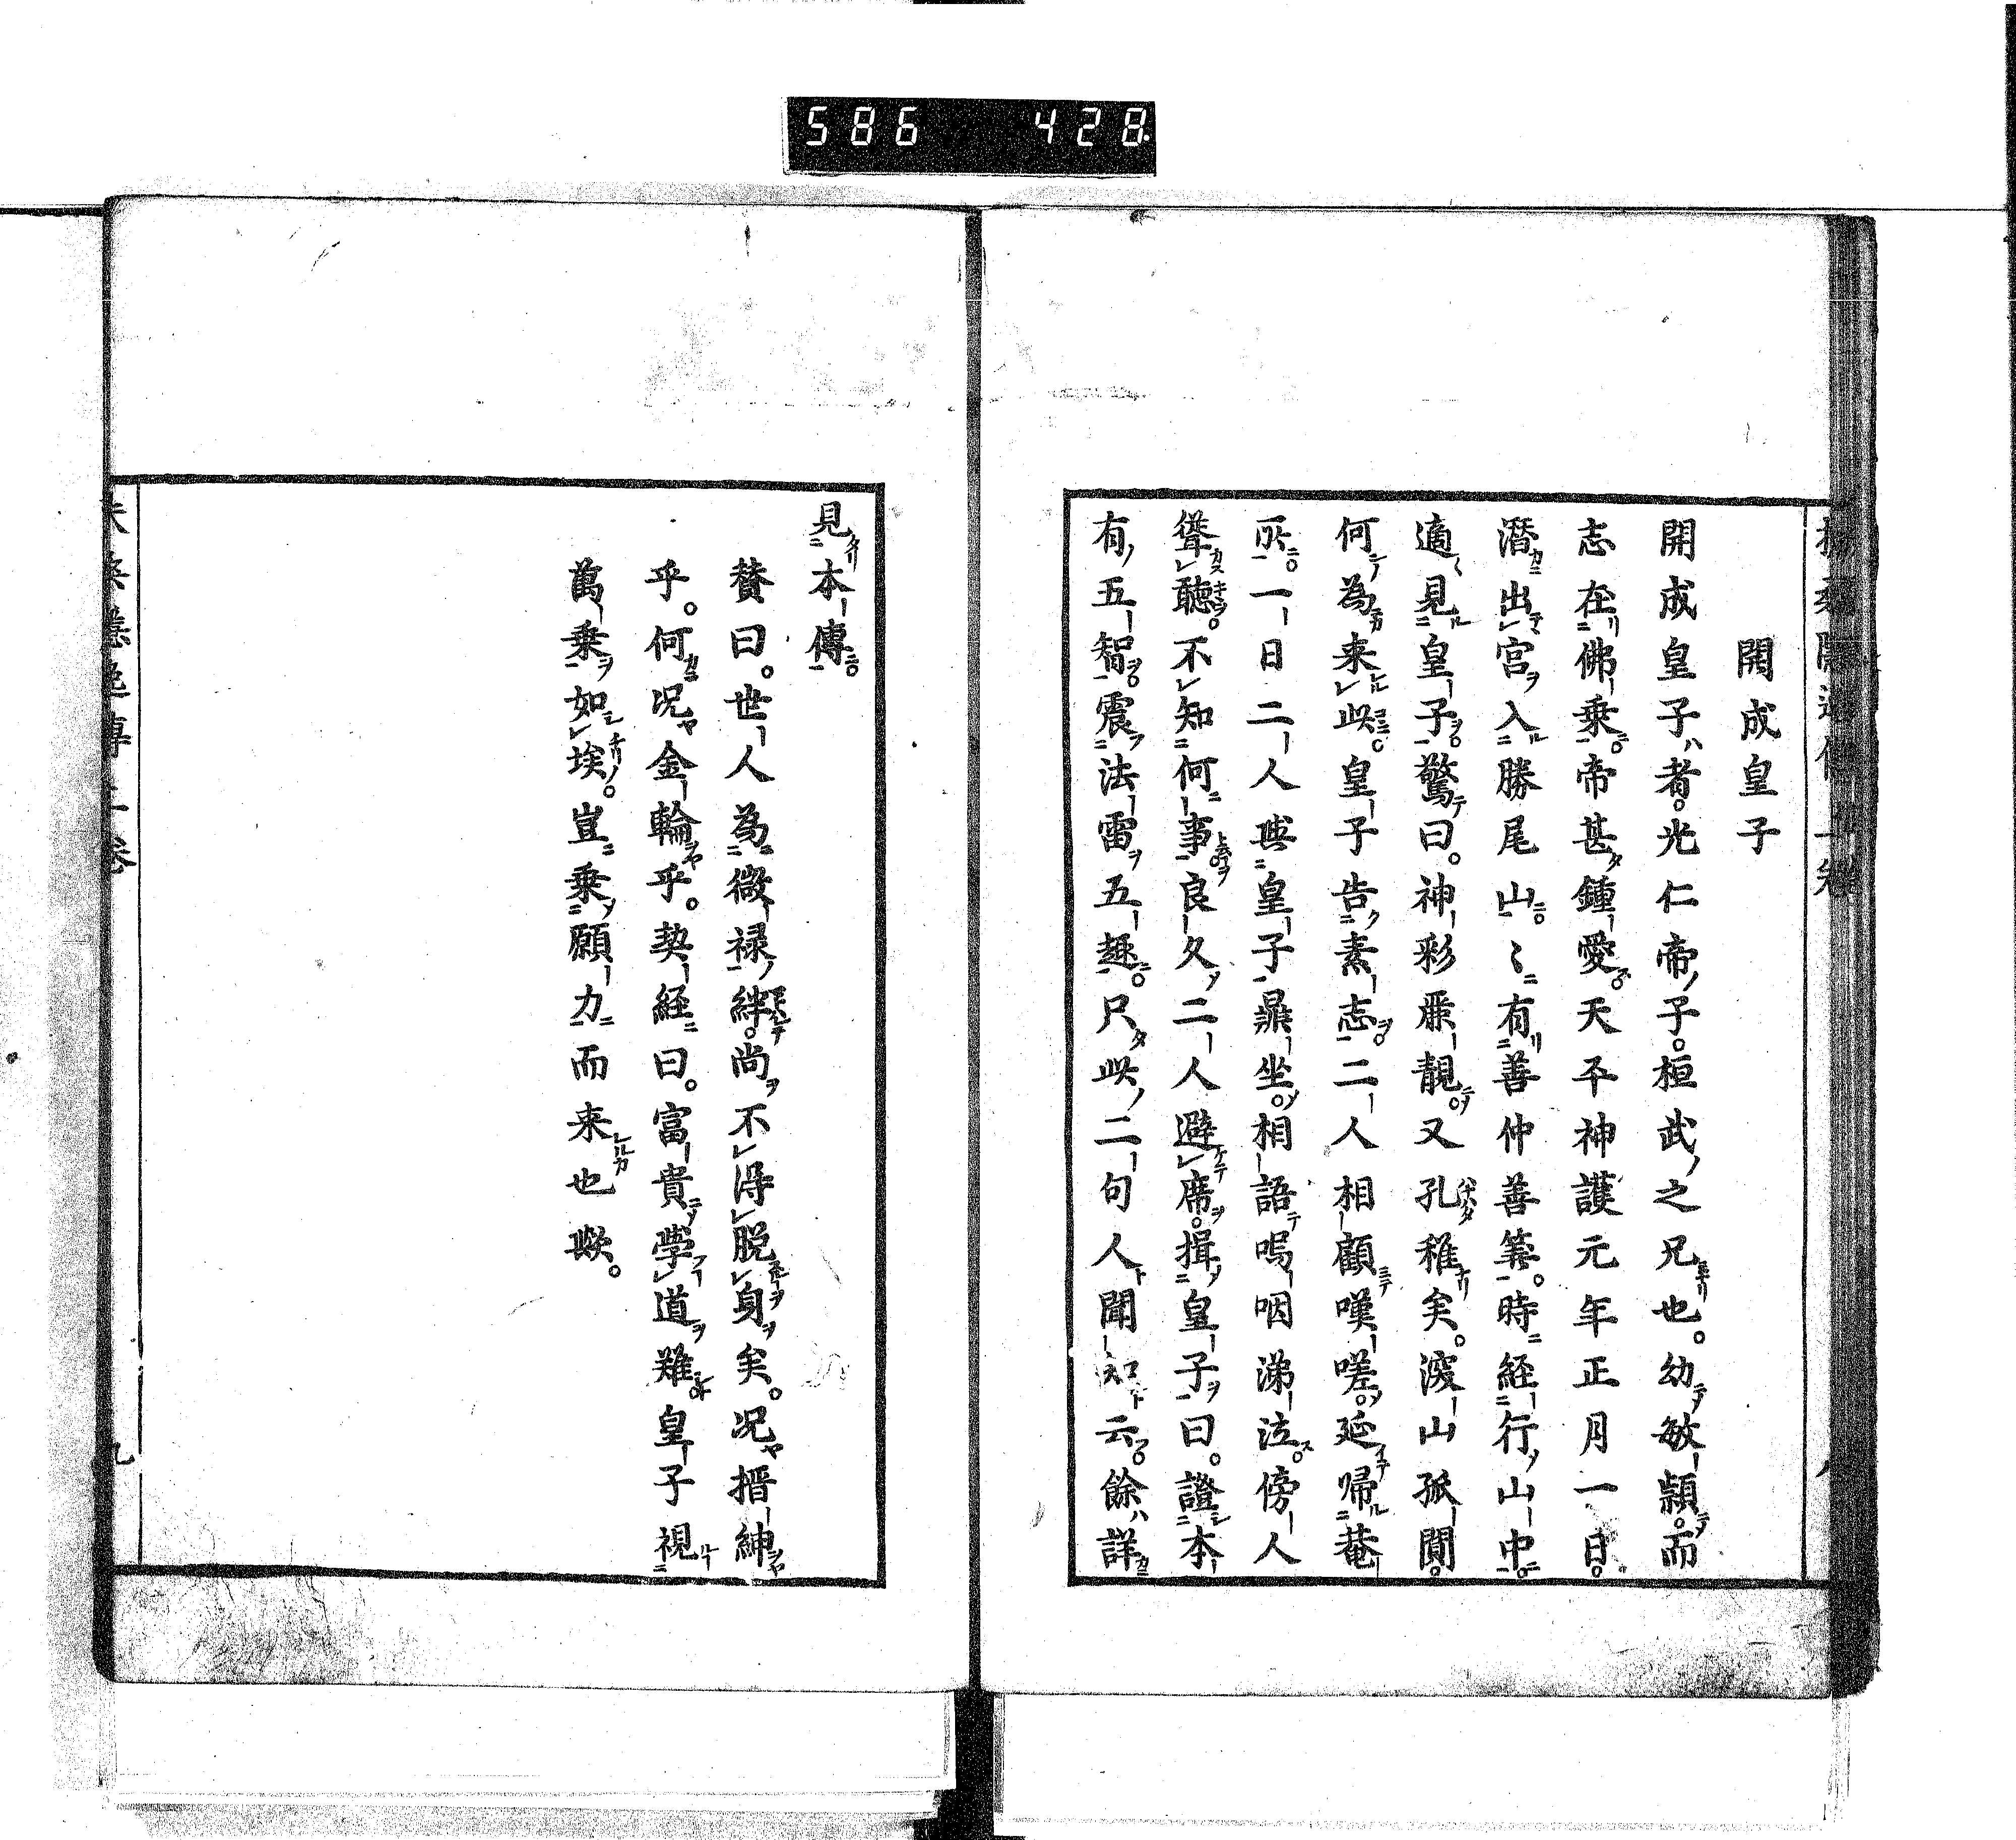 586 428
開成皇子
開成皇子者。光仁帝子。桓武之兄也。幼敏穎。而
志在佛乗。帝甚鍾愛。天平神護元年正月一日。
潛出宮入勝尾山。〻有善仲善筭。時経行山中。
適見皇子。驚曰。神彩厳靚。又孔稚矣。深山孤閴。
何為来此。皇子告素志。二人相顧嘆嗟。延帰菴
所。一日二人與皇子鼎坐。相語嗚咽涕泣。傍人
聳聴。不知何事。良久二人避席。揖皇子曰。證本
有五智。震法雷五趣。只此二句人聞知云。餘詳
見本傳。
賛曰。世人為微禄絆。尚不得脱身矣。况搢紳
乎。何况金輪乎。契経曰。富貴學道難。皇子視
萬乗如埃。豈乗願力而来也歟。
九